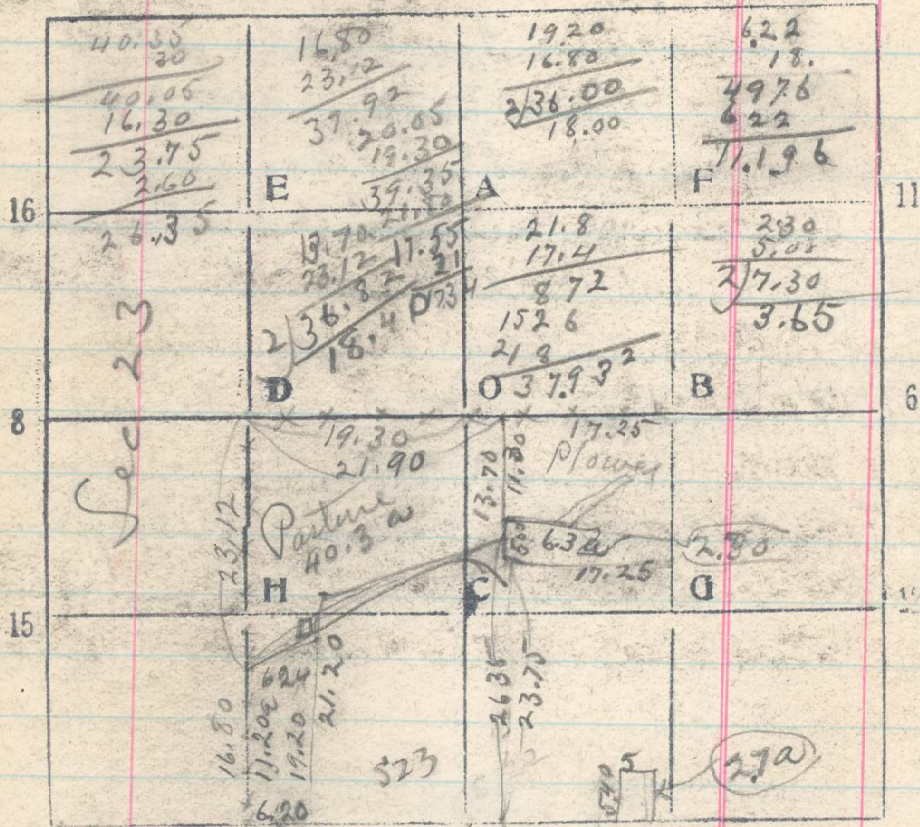 40.35
30
40.05
16.30
23.75
2.60
26.35
16.80
23.12
39.92
20.05
19.30
39.35
21.80
E
19.20
16.80
2)36.00
18.00
A
6.22
18.
4976
622
11.196
F
16
11
13.70
23.12
2)36.82
18.4
17.55
21
D
21.8
17.4
872
1526
218
37.932
O
2.30
5.00
2)7.30
3.65
B
Sec 23
8
6
19.30
21.90
17.25
Plowed
23.12
Pasture
40.3 a
13.70
11.30
500
6.32a
17.25
2.30
H
C
G
15
16.80
624
11.20a
19.20
21.20
6.20
523
26.35
23.75
5
540
2.7a